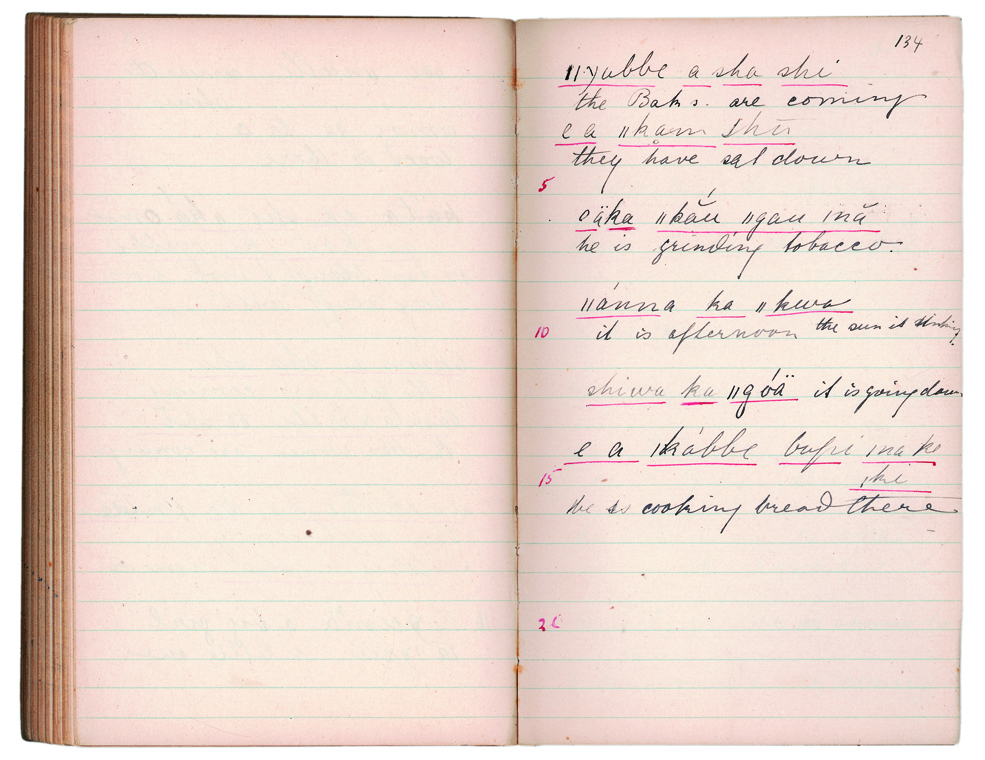 134
ǁyabbe a sha shi
the Baks. are coming
e a ǁkam shĭ
they have sat down
5
oäka ǁkắu ǁgau ǀnă
he is grinding tobacco.
ǁánna ka ǁkwa
10 it is afternoon the sun is
shiwa ka ǁgóä it is going down
e a ǀkábbe ǀna ke
15 ǀke
he is cooking bread there